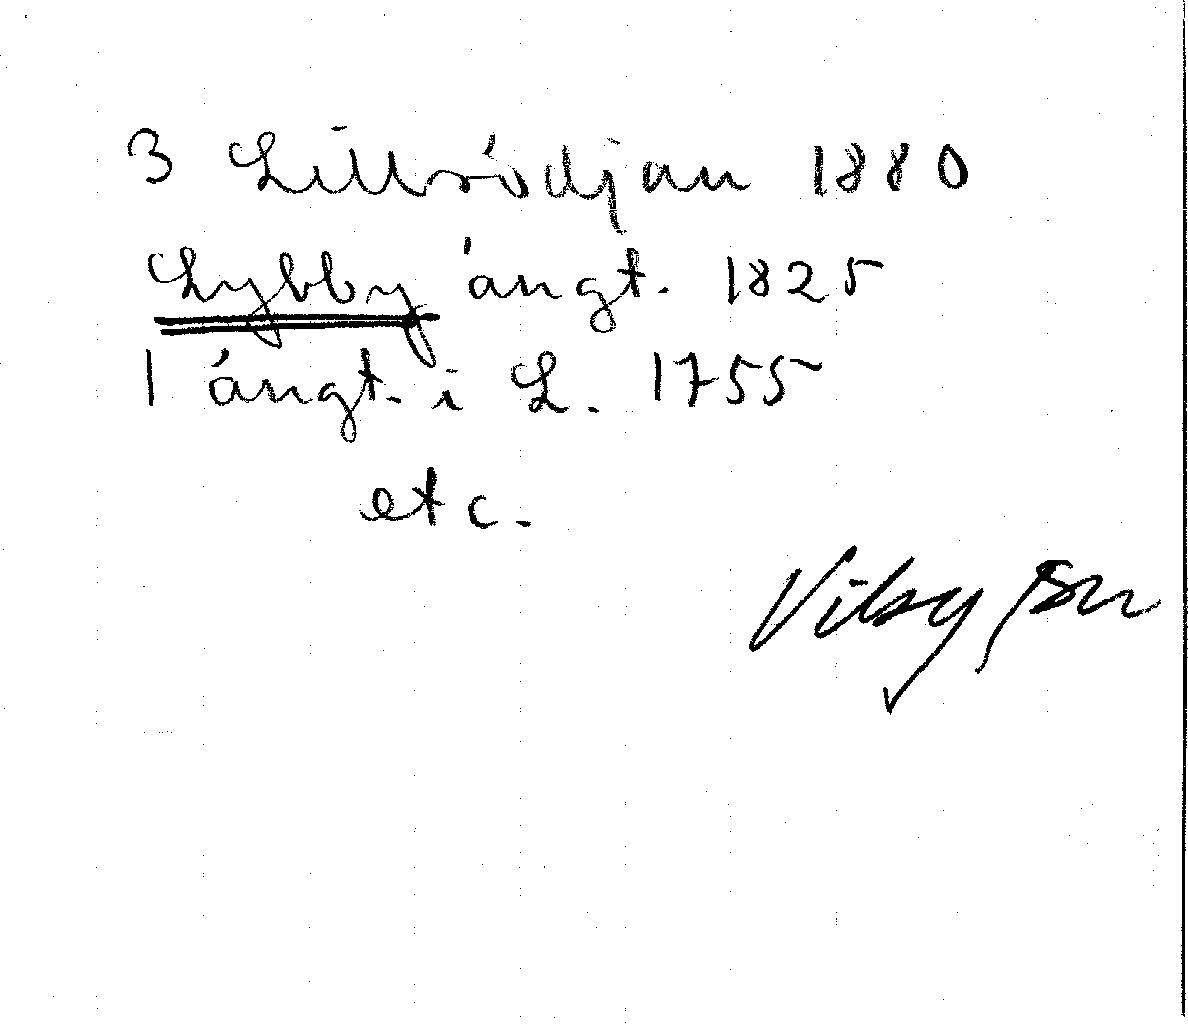 3 Lillsödjan 1880
Lybby ängt. 1825
1 ängt. i L. 1755
etc.
Viby sn